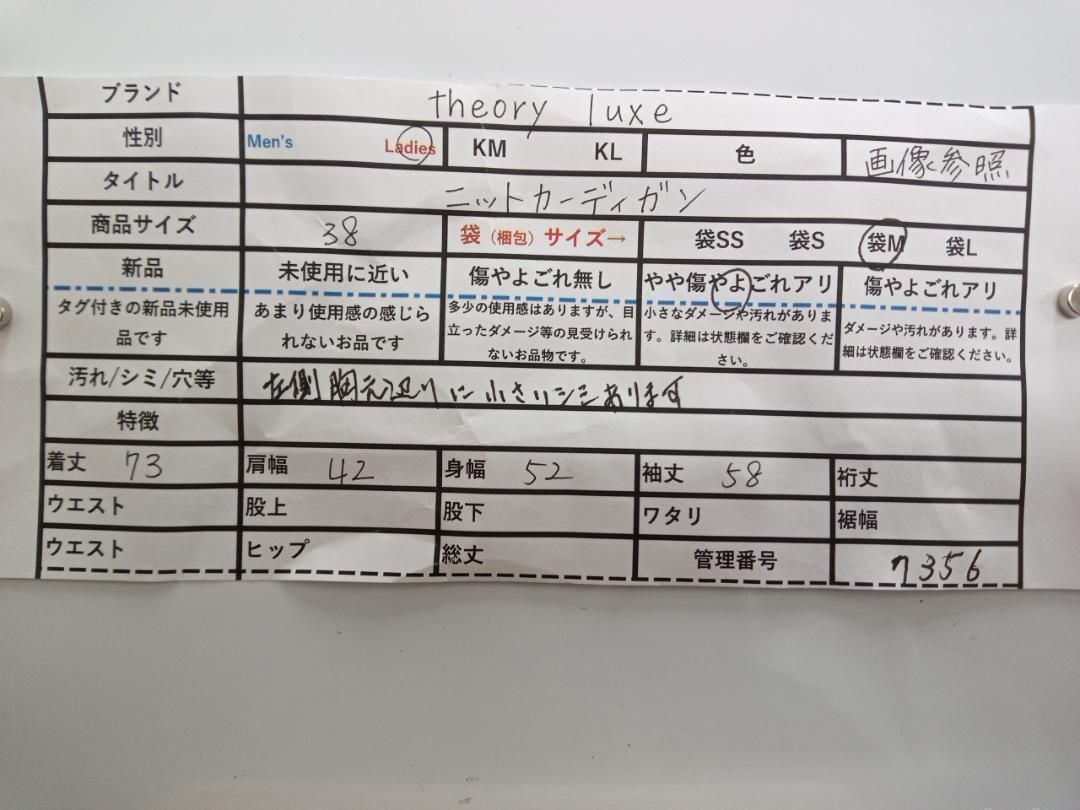 ブランド theory luxe
性別 Men's Ladies KM KL 色 画像参照
タイトル ニットカーディガン
商品サイズ 38 袋（梱包）サイズ→ 袋SS 袋S 袋M 袋L
新品 未使用に近い 傷やよごれ無し やや傷やよごれアリ 傷やよごれアリ
タグ付きの新品未使用品です
あまり使用感の感じられないお品です
多少の使用感はありますが、目立ったダメージ等の見受けられないお品物です。
小さなダメージや汚れがあります。詳細は状態欄をご確認ください。
ダメージや汚れがあります。詳細は状態欄をご確認ください。
汚れ/シミ/穴等 左側胸元辺りに小さいシミあります
特徴
着丈 73 肩幅 42 身幅 52 袖丈 58 裄丈
ウエスト 股上 股下 ワタリ 裾幅
ウエスト ヒップ 総丈 管理番号 7356